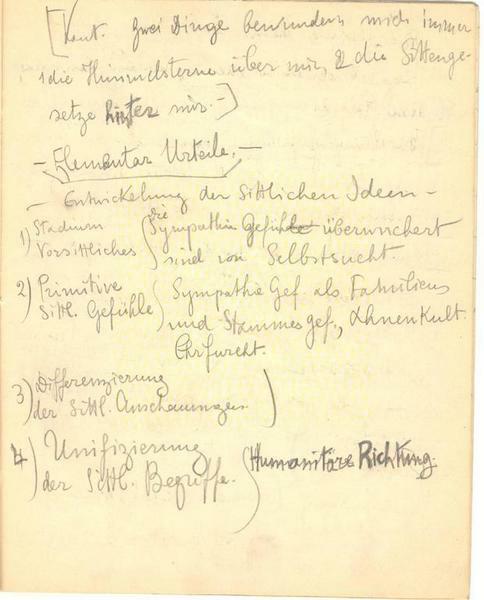 [Kant. Zwei Dinge bewundern mich immer
1 die Himmelsterne über mir, 2 die Sittenge-
setze hinter mir.-]
- Elementar Urteile. -
- Entwickelung der Sittlichen Ideen -
1) Stadium Vorsittliches { Die Sympathie Gefühle überwuchert
sind von Selbstsucht.
2) Primitive Sittl. Gefühle } Sympathie Gef. als Familiens
und Stammesgef., Ahnenkult.
Ehrfurcht.
3) Differenzierung
der Sittl. Anschauungen )
4) Unifizierung
der Sittl. Begriffe. { Humanitäre Richtung.